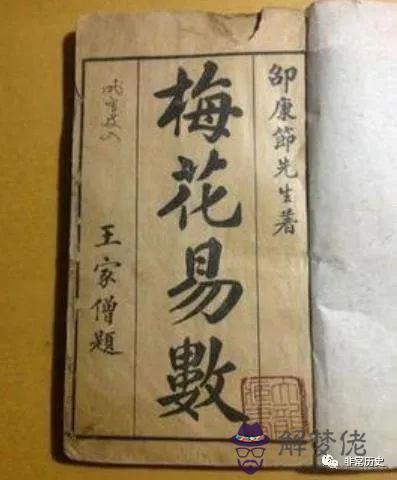 邵康節先生著
梅花易數
王家僧題
解梦佬
非常历史